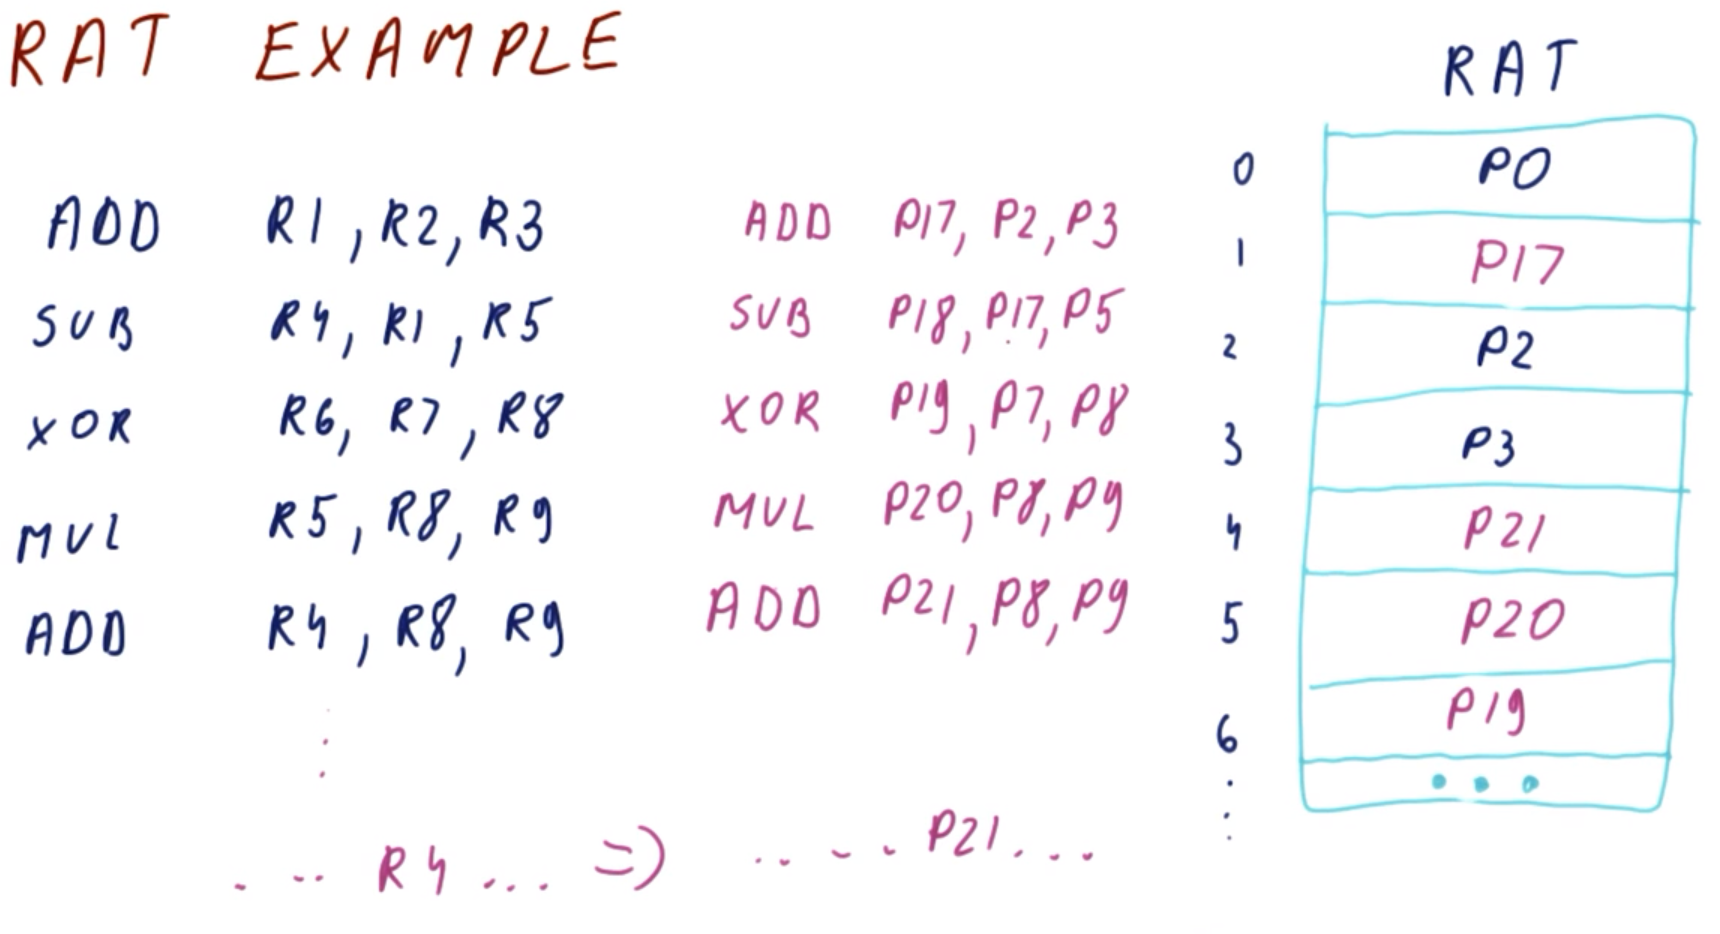 RAT EXAMPLE
ADD R1, R2, R3
SUB R4, R1, R5
XOR R6, R7, R8
MUL R5, R8, R9
ADD R4, R8, R9
... R4 ... => .... P21....
ADD P17, P2, P3
SUB P18, P17, P5
XOR P19, P7, P8
MUL P20, P8, P9
ADD P21, P8, P9
RAT
0 P0
1 P17
2 P2
3 P3
4 P21
5 P20
6 P19